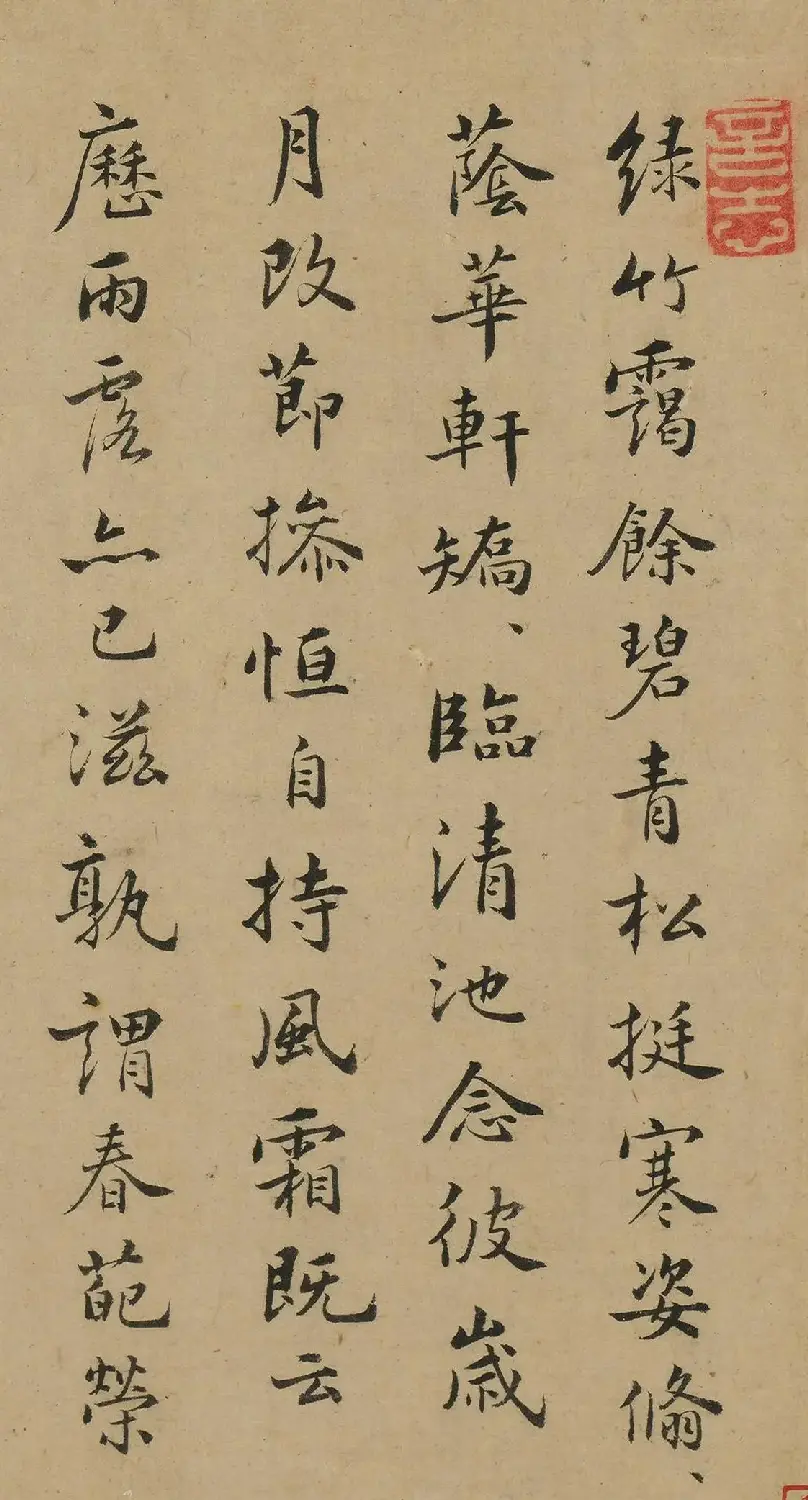 緑竹靄餘碧青松挺寒姿翛、
蔭華軒矯、臨清池念彼歲
月改節摻恒自持風霜既云
歷雨露亦已滋孰謂春葩榮